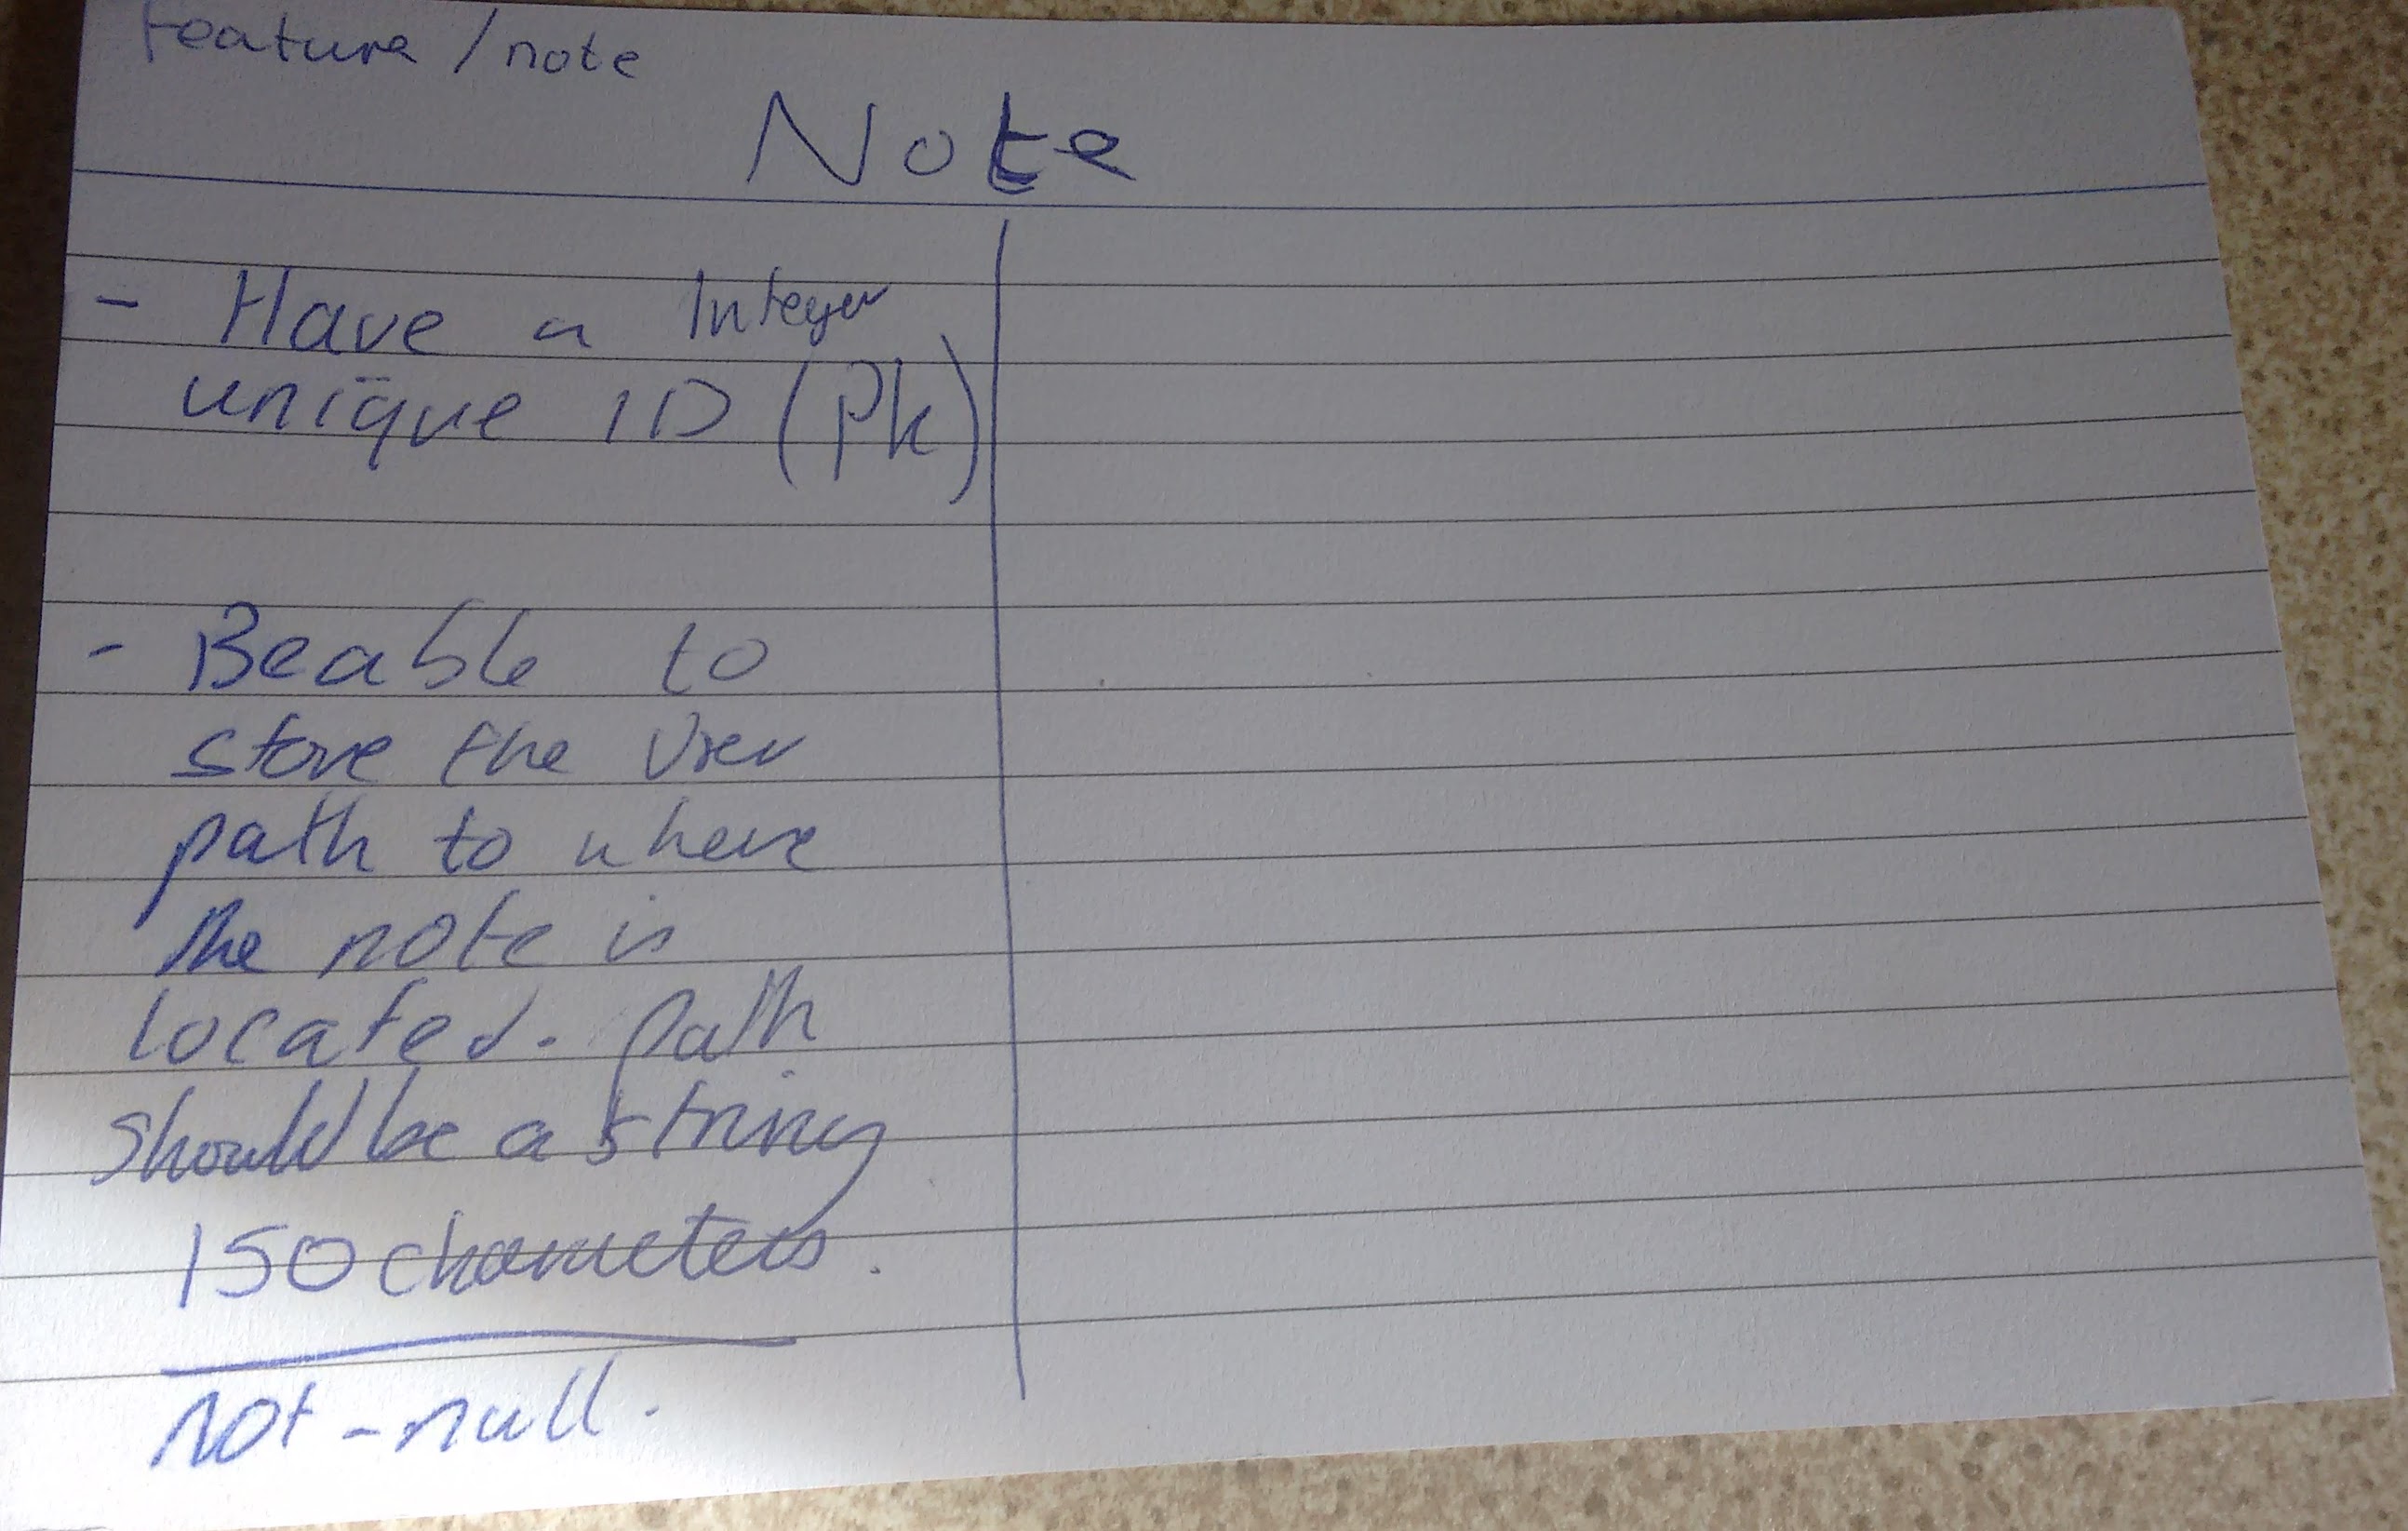 feature / note
Note
- Have a Integer
unique ID (Pk)
- Beable to
store the User
path to where
the note is
located. Path
should be a string
150 characters.
not-null.